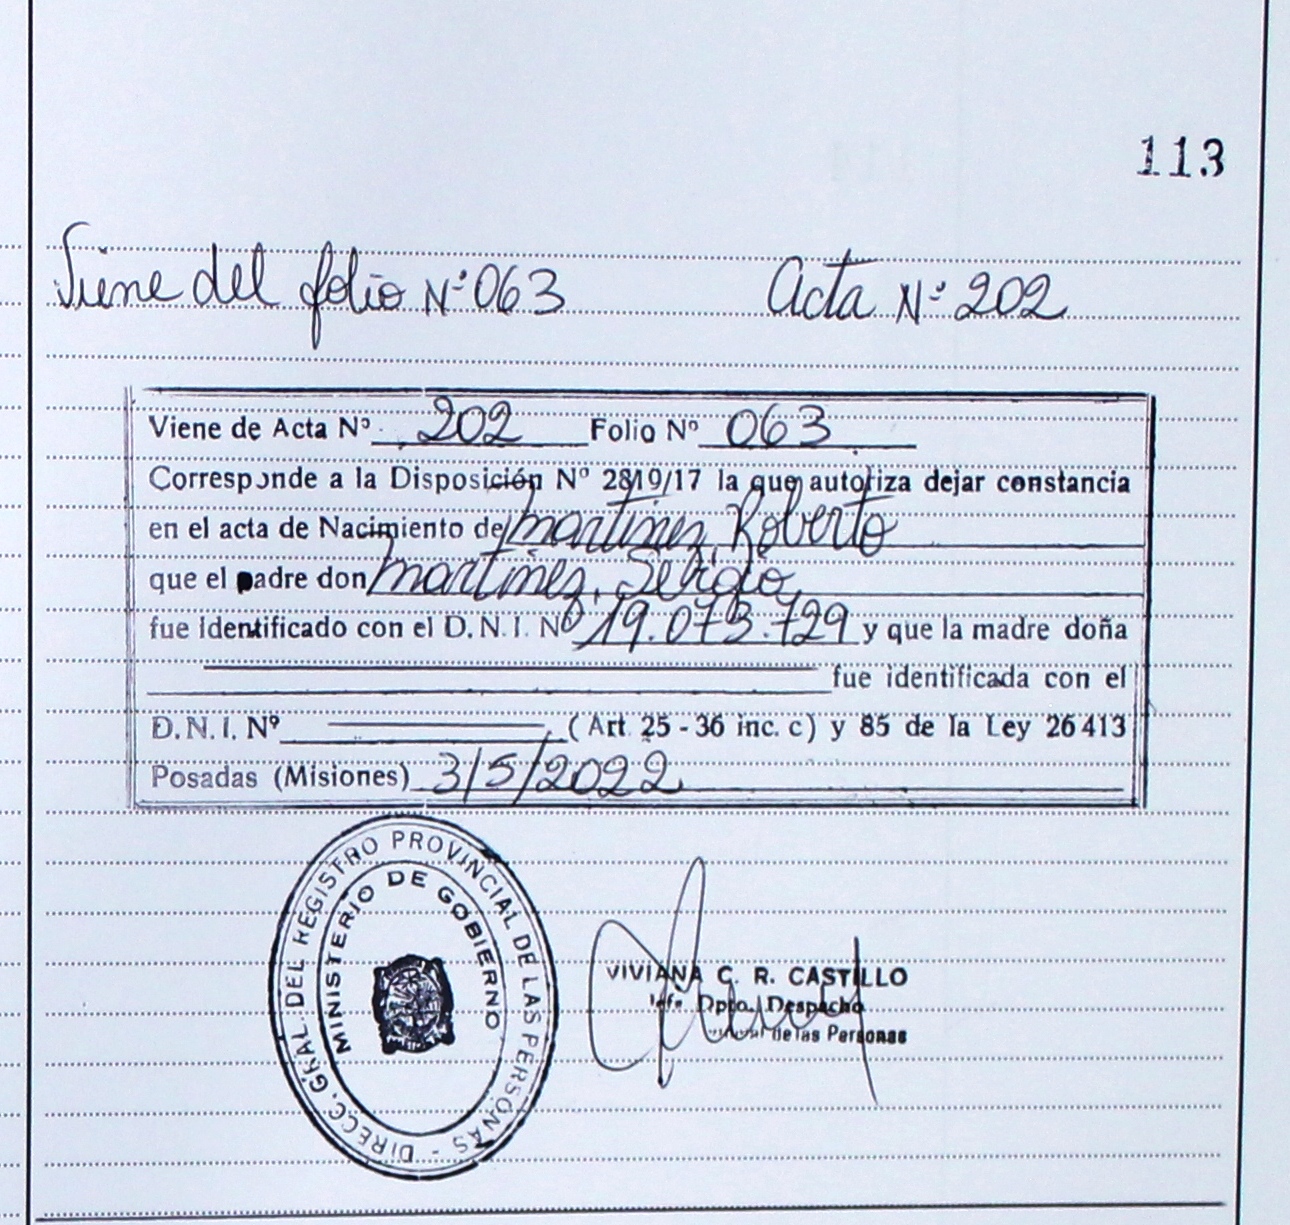 113
Viene del folio Nº 063 Acta Nº 202
Viene de Acta Nº 202 Folio Nº 063
Corresponde a la Disposición Nº 2819/17 la que autoriza dejar constancia
en el acta de Nacimiento de Martinez, Roberto
que el padre don Martinez, Sergio
fue identificado con el D.N.I. Nº 19.073.729 y que la madre doña
fue identificada con el
D.N.I. Nº (Art. 25 - 36 inc. c) y 85 de la Ley 26413
Posadas (Misiones) 3/5/2022
DIRECC. GRAL. DEL REGISTRO PROVINCIAL DE LAS PERSONAS -
MINISTERIO DE GOBIERNO
VIVIANA C. R. CASTILLO
Jefe Dpto. Despacho
de las Personas